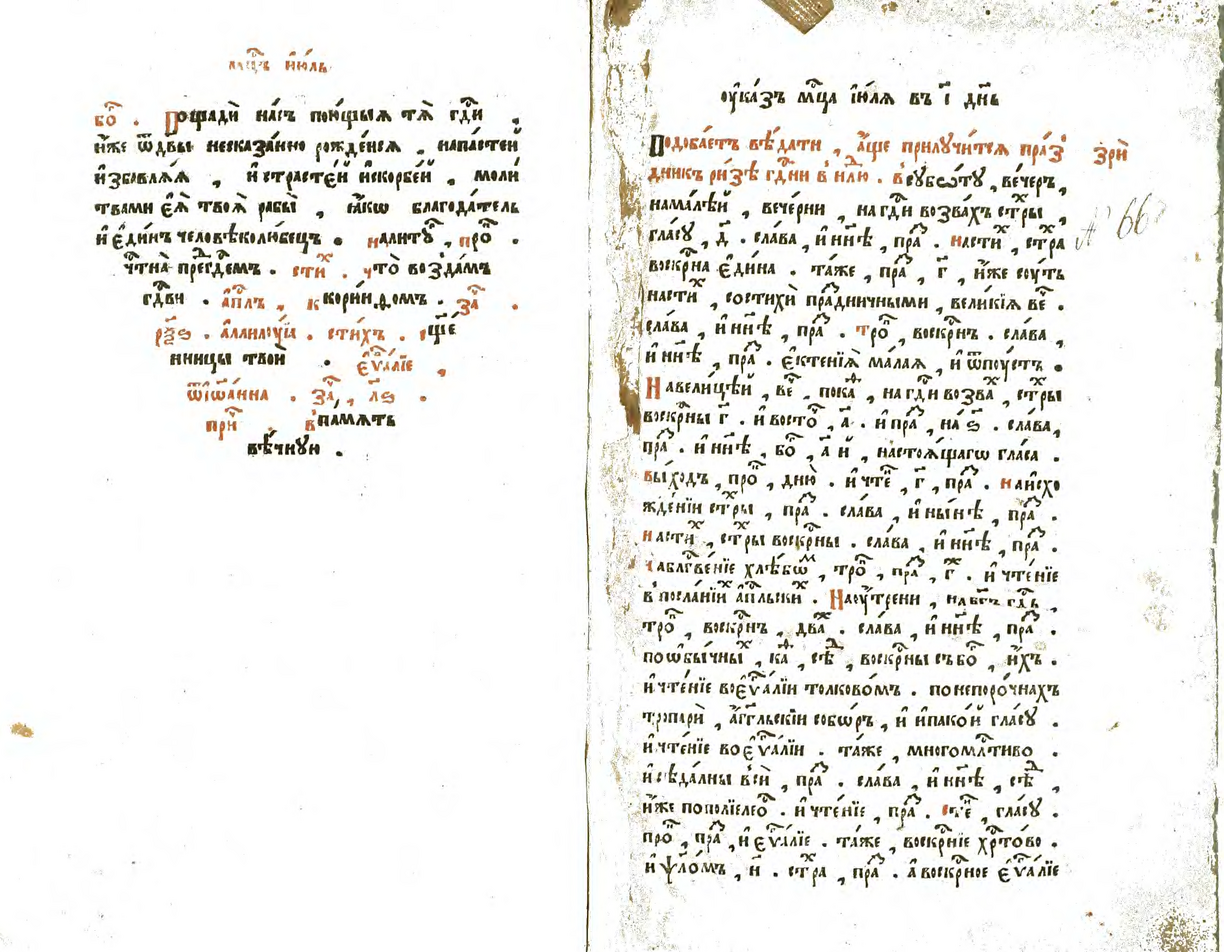 мцⷭ҇ъ ию́ль
бо̑ . Пощади̑ на́съ пою́щыѧ тѧ̀ гдⷭ҇и ,
и҆́же ѿдв҃ы несказа́нно рожде́нсѧ , напа́стей
и҆збавлѧ́ѧ , и҆страсте́й и҆скорбе́й , моли́
твами є҆ѧ̀ твоѧ̀ рабы̀ , ꙗ҆́кѡ благода́тель
и҆ є҆ди́нъ человѣколю́бецъ . налитꙋ̑ , про̑ .
чⷭ҇тна̀ преⷣг҇демъ . стиⷯ . что̀ возда́мъ
гдⷭ҇ви . а҆пⷭ҇лъ , к коринѳомъ . за̑ .
рп҃ѕ . аллилꙋ́їа . сти́хъ . свяще́
нницы твои̑ . є҆ѵⷢ҇а́лїе ,
ѿїѡа́нна . за̑ , л҃ѕ .
при̑ . в па́мѧть
вѣ́чнꙋю .
ᲂу҆ка́зъ мцⷭ҇а і҆ю́лѧ въ і҃ дн҃ь
Подоба́етъ вѣ́дати , а҆́ще прилꙋчи́тсѧ пра́з
дникъ ри́зѣ гдⷭ҇ни в неⷣлю . в сꙋббѡ́тꙋ , ве́черъ ,
зри̑
№ 66
нама́лѣй , вече́рни , на гдⷭ҇и возва́хъ стⷯры ,
гла́сꙋ , д҃ . сла́ва , и҆ нн҃ѣ , праⷥ . насти́ⷯ , стⷯра
воскрⷭ҇на є҆ди́на . та́же , праⷥ , г҃ , и҆́же сꙋ́ть
насти́ⷯ , состихи̑ праⷥ҇дничными , вели́кїѧ ве̑ .
сла́ва , и҆ нн҃ѣ , праⷥ . тро̑ , воскрⷭ҇нъ . сла́ва ,
и҆ нн҃ѣ , праⷥ . є҆ктенїѧ̀ ма́лаѧ , и҆ ѿпꙋ́стъ .
Навели́цѣй , ве̑ . пока̑ⷴ , на гдⷭ҇и возва̑ⷯ , стⷯры
воскрⷭ҇ны г҃ . и҆ восто̑ , а҃ . и҆ праⷥ , на ѕ҃ . сла́ва ,
праⷥ . и҆ нн҃ѣ , бо̑ , а҃ й , настоѧ́щагѡ гла́са .
вы́ходъ , про̑ , дню̀ . и҆ чте̑ , г҃ , праⷥ . наи҆схо
жде́нїи стⷯры , праⷥ . сла́ва , и҆ ны́нѣ , праⷥ .
насти́ⷯ , стⷯры воскрⷭ҇ны . сла́ва , и҆ нн҃ѣ , праⷥ .
наблгⷭ҇ве́нїе хлѣ́бѡⷨ , тро̑ , праⷥ , г҃ⷯ . и҆ чте́нїе
в посла́нїи а҆пⷭ҇льскиⷯ . Наᲂу҆́трени , на бг҃ъ гдⷭ҇ь ,
тро̑ , воскрⷭ҇нъ , два́ⷤ . сла́ва , и҆ нн҃ѣ , праⷥ .
поѡ҆бы́чныⷯ , каⷴ , сѣⷣ , воскрⷭ҇ны съ бо̑ , и҆́хъ .
и҆ чте́нїе во є҆ѵⷢ҇а́лїи толково́мъ . понепоро́чнахъ
тропари̑ , а҆́гг҃льскїи собѡ́ръ , и҆ и҆пакои̑ гла́сꙋ .
и҆ чте́нїе во є҆ѵⷢ҇а́лїи . та́же , многомлⷭ҇тиво .
и҆ сѣда́лны всѝ , праⷥ . сла́ва , и҆ нн҃ѣ , сѣⷣ ,
и҆́же пополїелео̑ . и҆ чте́нїе , праⷥ . сте̑ , гла́сꙋ .
про̑ , праⷥ , и҆ є҆ѵⷢ҇а́лїе . та́же , воскрⷭ҇нїе хрⷭ҇то́во .
и҆ ѱало́мъ , н҃ . стⷯра , праⷥ . а҆ воскрⷭ҇ное є҆ѵⷢ҇а́лїе